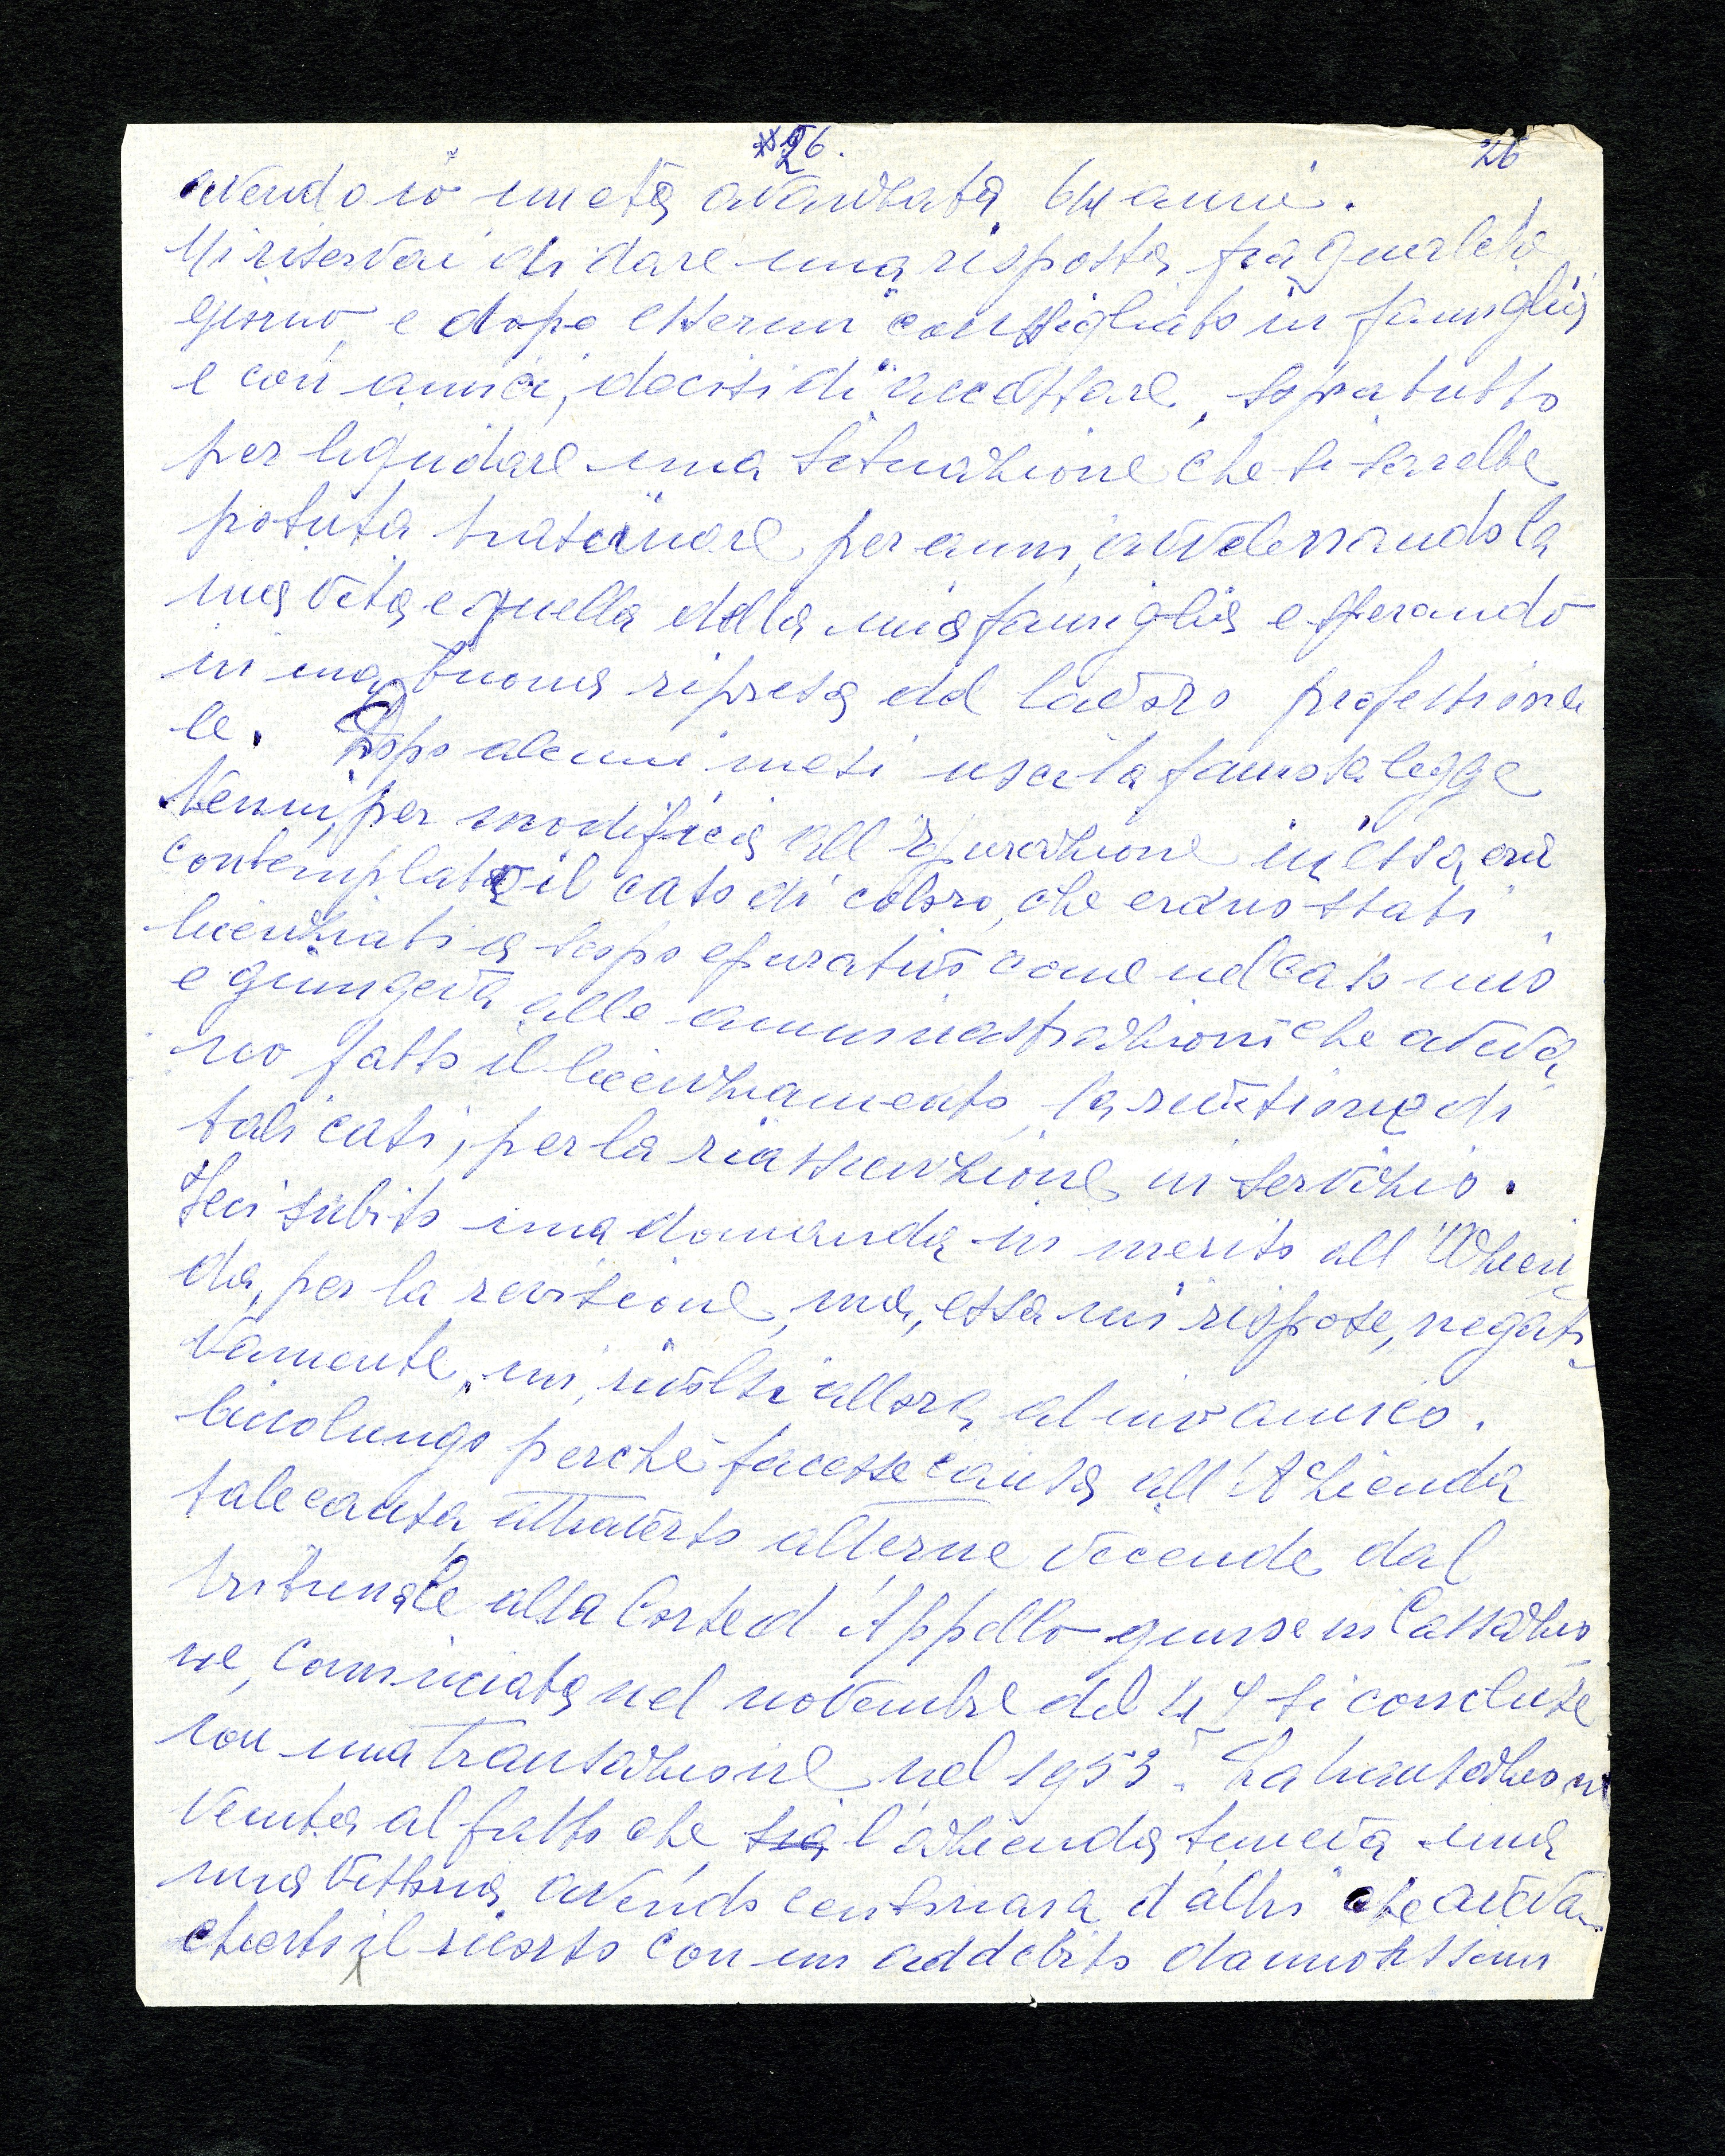 26. 26
avendo io un età avanzata, 64 anni.
Mi riservai di dare una risposta fra qualche
giorno, e dopo essermi consigliato in famiglia
e con amici, decisi di accettare, sopratutto
per liquidare una situazione che si sarebbe
potuta trascinare per anni, avvelenando la
mia vita e quella della mia famiglia e sperando
in una buona ripresa del lavoro professiona
le. Dopo alcuni mesi uscì la famosa legge
Nenni, per modifica all'epurazione in essa era
contemplato il caso di coloro, che erano stati
licenziati a scopo epurativo come nel caso mio
e giungeva alle amministrazioni che aveva
no fatto il licenziamento, la revisione di
tali casi, per la riassunzione in servizio.
Feci subito una domanda in merito all'Azien
da, per la revisione, ma, essa mi rispose, negati
vamente, mi, rivolsi allora al mio amico.
Piccolungo perchè facesse causa all'Azienda
tale causa attraverso alterne vicende dal
tribunale alla Corte d'Appello giunse in Cassazio
ne, Cominciata nel novembre del 47 si concluse
con una transazione nel 1953. La transazione
venuta al fatto che l'azienda temeva una
mia vittoria avendo centinaia d'altri che aveva
il ricorso con un addebito dannosissimo